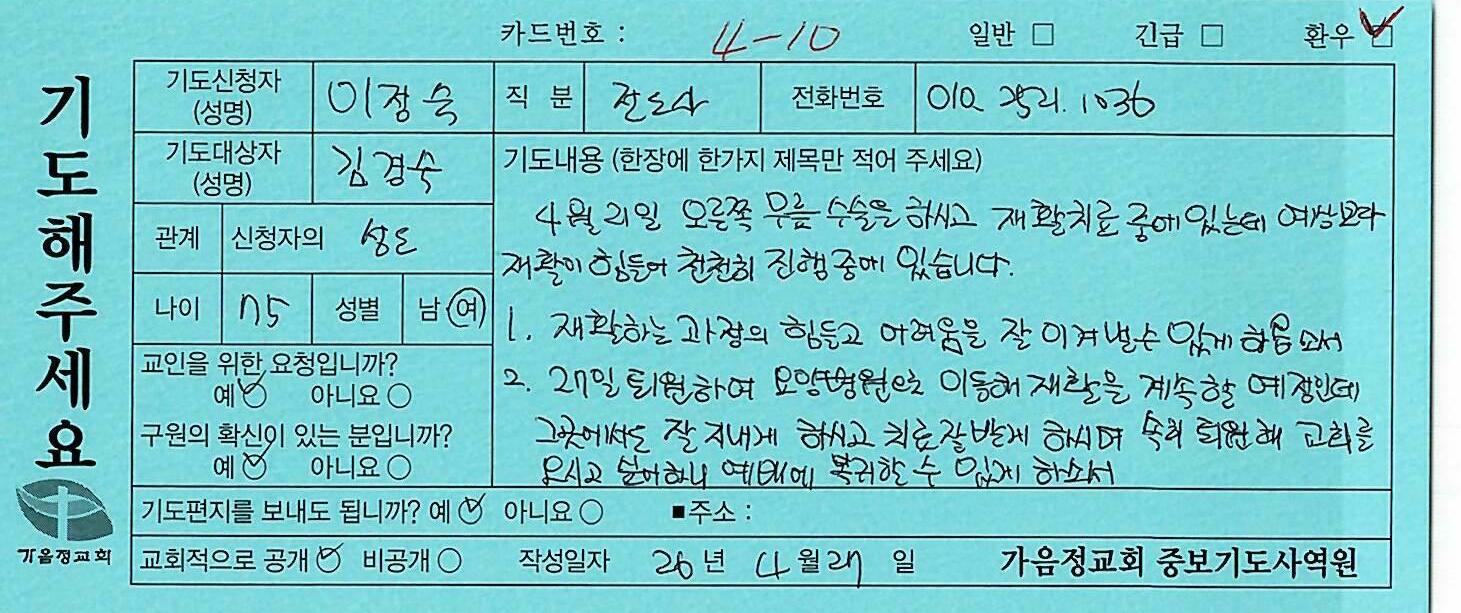 카드번호 : 4-10 일반 □ 긴급 □ 환우 ☑
기도해주세요
기도신청자 (성명) 이정숙 직 분 전도사 전화번호 010 2521. 1036
기도대상자 (성명) 김경숙
관계 신청자의 성도
나이 75 성별 남 여
교인을 위한 요청입니까?
예 ✓ 아니요 ○
구원의 확신이 있는 분입니까?
예 ✓ 아니요 ○
기도내용 (한장에 한가지 제목만 적어 주세요)
4월 21일 오른쪽 무릎 수술을 하시고 재활치료 중에 있는데 예상보다
재활이 힘들어 천천히 진행중에 있습니다.
1. 재활하는 과정의 힘들고 어려움을 잘 이겨낼수 있게 하옵소서
2. 27일 퇴원하여 요양병원으로 이동해 재활을 계속할 예정인데
그곳에서도 잘 지내게 하시고 치료잘받게 하시며 속히 퇴원해 교회를
오시고 싶어하니 예배에 복귀할 수 있게 하소서
기도편지를 보내도 됩니까? 예 ✓ 아니요 ○ ■주소 :
교회적으로 공개 ✓ 비공개 ○ 작성일자 26 년 4 월 27 일 가음정교회 중보기도사역원
가음정교회